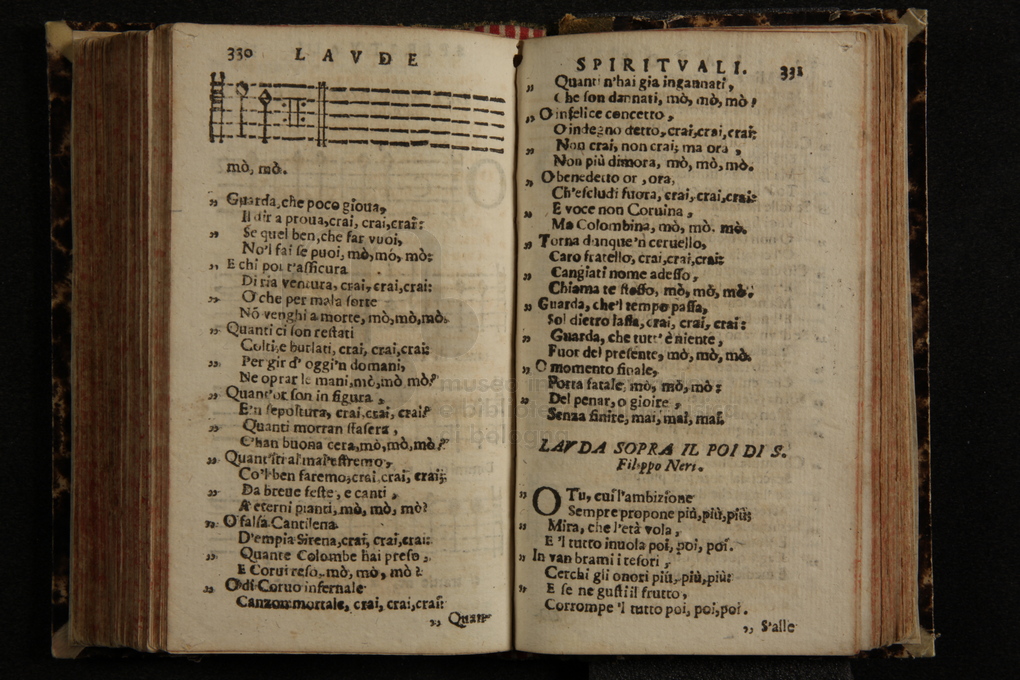 330 LAVDE
mò, mò.
„ Guarda, che poco gioua,
Il dir a proua, crai, crai, crai:
„ Se quel ben, che far vuoi,
No'l fai se puoi, mò, mò, mò:
„ E chi poi t'assicura
Di ria ventura, crai, crai, crai:
„ O che per mala sorte
Nõ venghi a morte, mò, mò, mò.
„ Quanti ci son restati
Colti, e burlati, crai, crai, crai:
„ Per gir d' oggi'n domani,
Ne oprar le mani, mò, mò, mò?
„ Quant'or son in figura,
E'n sepoltura, crai, crai, crai?
„ Quanti morran stasera,
C'han buona cera, mò, mò, mò?
„ Quant'iti al mal'estremo,
Co'l ben faremo, crai, crai, crai;
„ Da breue feste, e canti,
A eterni pianti, mò, mò, mò?
„ O falsa Cantilena
D'empia Sirena, crai, crai, crai:
„ Quante Colombe hai preso,
E Corui reso, mò, mò, mò?
„ O di Coruo infernale
Canzon mortale, crai, crai, crai:
„ Quan-
SPIRITVALI. 331
„ Quanti n'hai gia ingannati,
Che son dannati, mò, mò, mò!
„ O infelice concetto,
O indegno detto, crai, crai, crai:
„ Non crai, non crai, ma ora,
Non più dimora, mò, mò, mò.
„ O benedetto or, ora,
Ch'escludi fuora, crai, crai, crai:
„ E voce non Coruina,
Ma Colombina, mò, mò, mò.
„ Torna dunque'n ceruello,
Caro fratello, crai, crai, crai:
„ Cangiati nome adesso,
Chiama te stesso, mò, mò, mò.
„ Guarda, che'l tempo passa,
Sol dietro lassa, crai, crai, crai:
„ Guarda, che tutt' è niente,
Fuor del presente, mò, mò, mò.
„ O momento finale,
Porta fatale, mò, mò, mò:
„ Del penar, o gioire,
Senza finire, mai, mai, mai.
LAVDA SOPRA IL POI DI S.
Filippo Neri.
„ O Tu, cui l'ambizione
Sempre propone più, più, più;
„ Mira, che l'età vola,
E 'l tutto inuola poi, poi, poi.
„ In van brami i tesori,
Cerchi gli onori più, più, più:
„ E se ne gusti il frutto,
Corrompe 'l tutto poi, poi, poi.
„ S'alle